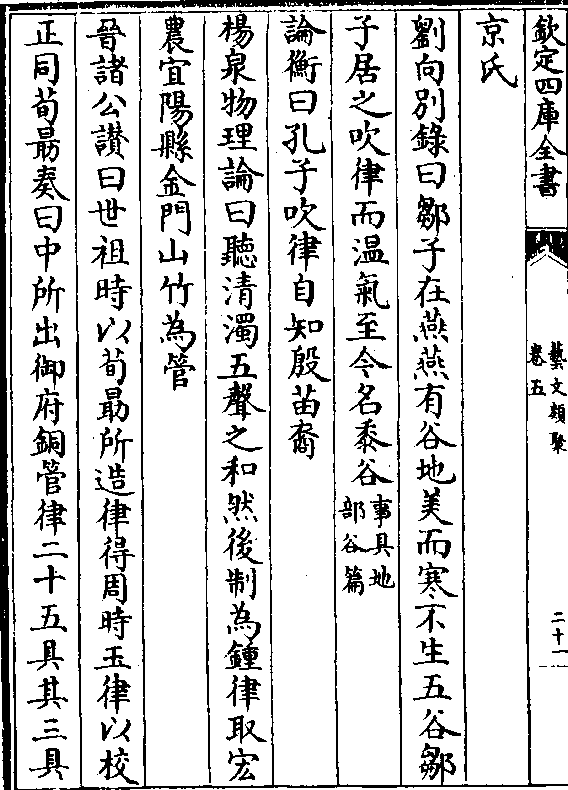 欽定四庫全書
藝文類聚
卷五
二十一
京氏
劉向別錄曰鄒子在燕燕有谷地美而寒不生五谷鄒
子居之吹律而温氣至今名黍谷事具地部谷篇
論衡曰孔子吹律自知殷苗裔
楊泉物理論曰聽清濁五聲之和然後制為鍾律取宏
農宜陽縣金門山竹為管
晉諸公讚曰世祖時以荀勗所造律得周時玉律以校
正同荀勗奏曰中所出御府銅管律二十五具其三具